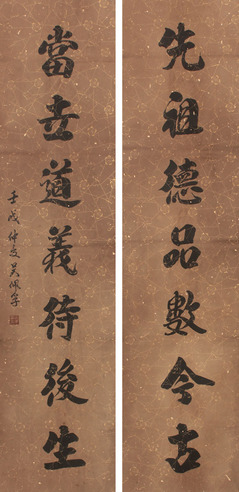 先祖德品數今古
當世道義待後生
壬戌仲夏吳佩孚